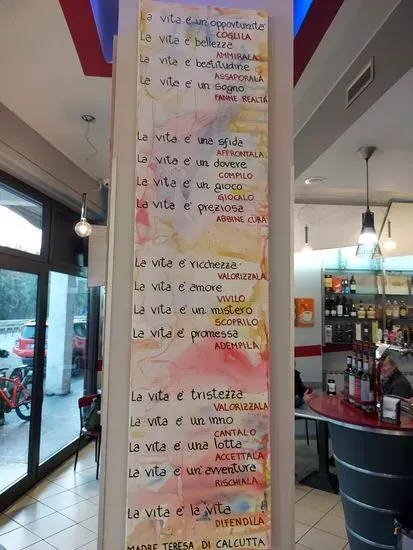 La vita è un opportunità
COGLILA
La vita è bellezza
AMMIRALA
La vita è beatitudine
ASSAPORALA
La vita è un sogno
FANNE REALTÀ
La vita è una sfida
AFFRONTALA
La vita è un dovere
COMPILO
La vita è un gioco
GIOCALO
La vita è preziosa
ABBINE CURA
La vita è ricchezza
VALORIZZALA
La vita è amore
VIVILO
La vita è un mistero
SCOPRILO
La vita è promessa
ADEMPILA
La vita è tristezza
VALORIZZALA
La vita è un inno
CANTALO
La vita è una lotta
ACCETTALA
La vita è un'avventura
RISCHIALA
La vita è la vita
DIFENDILA
MADRE TERESA DI CALCUTTA